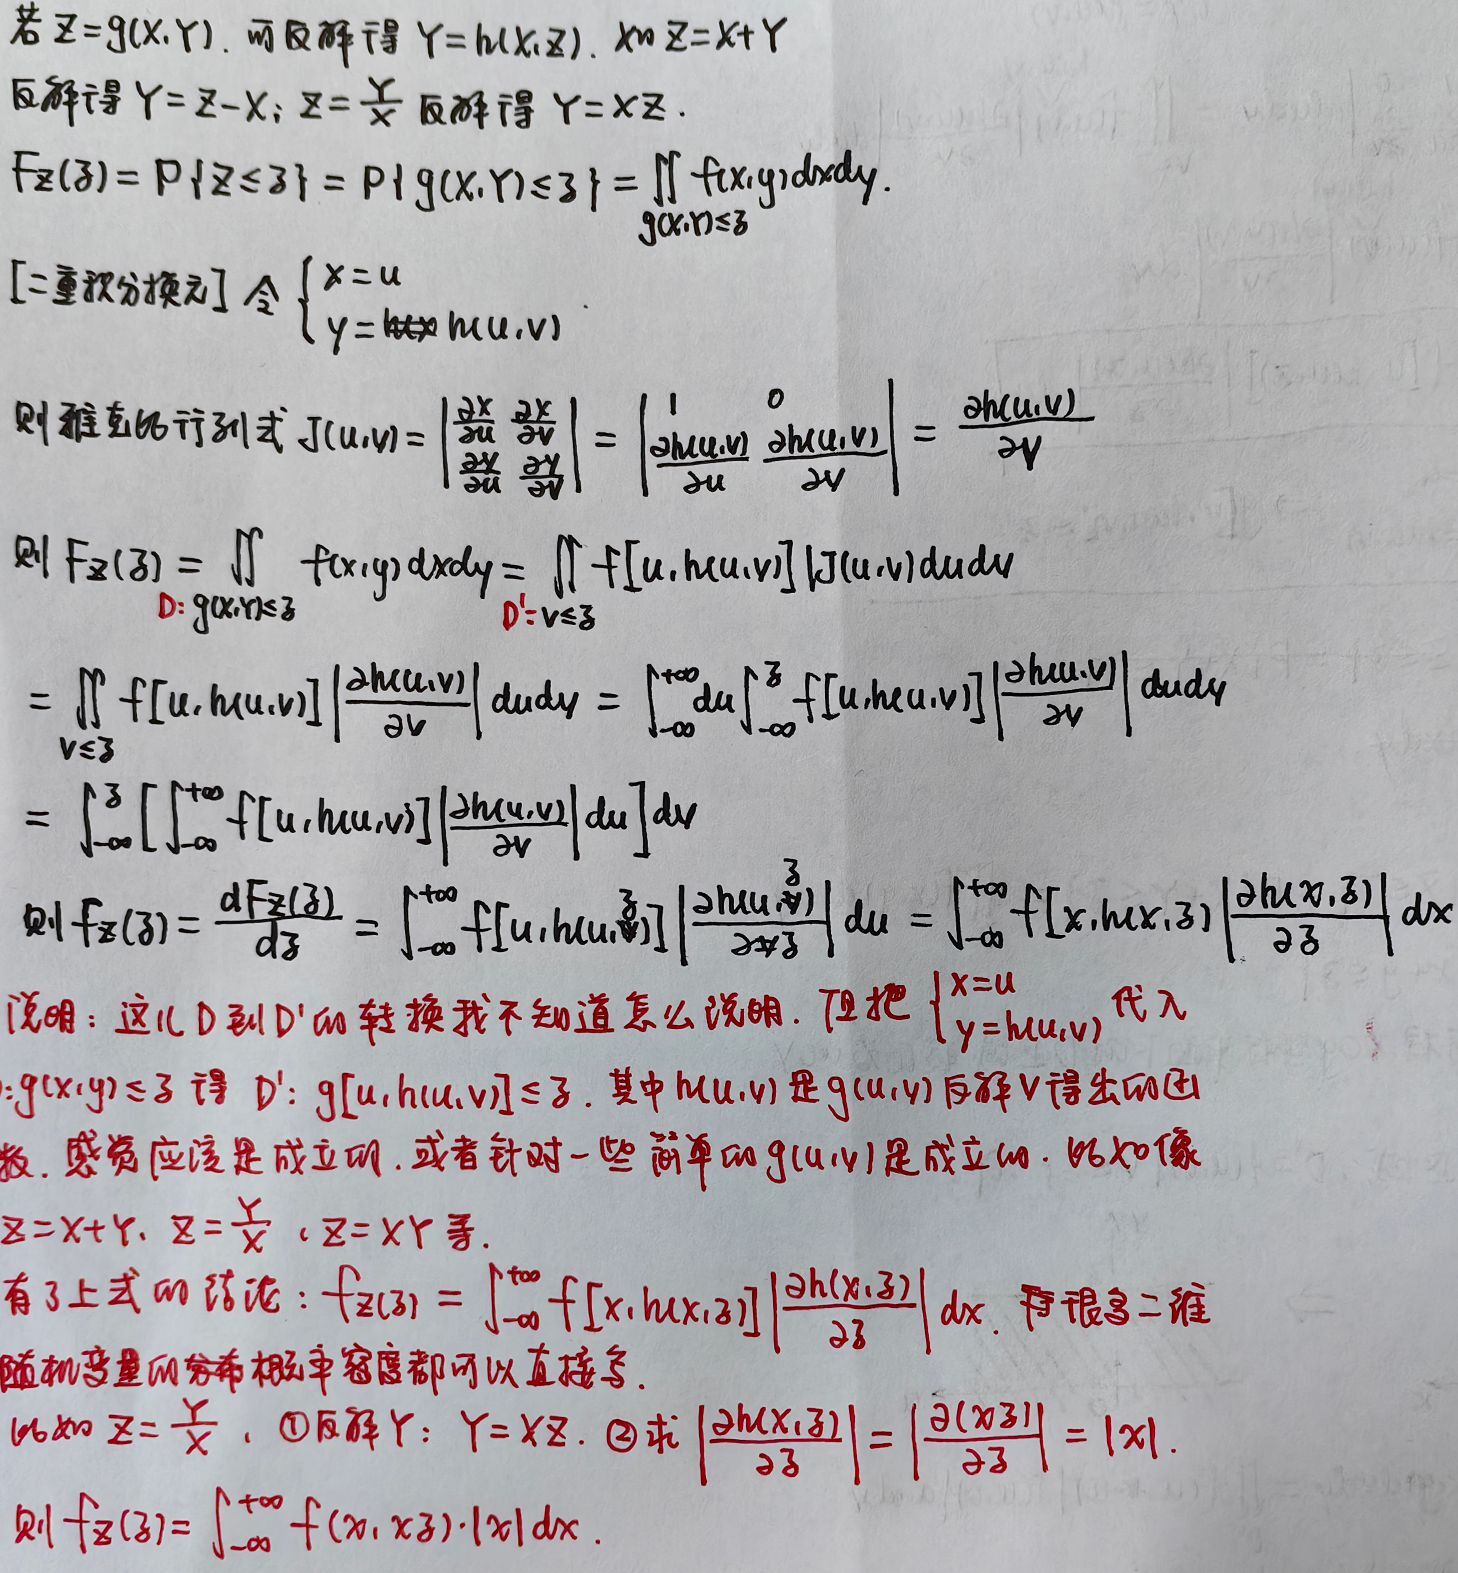 若 Z=g(X,Y). 可反解得 Y=h(X,Z). 如 Z=X+Y
反解得 Y=Z-X; Z=Y/X 反解得 Y=XZ.
F_Z(z)=P{Z≤z}=P{g(X,Y)≤z}=∬_{g(X,Y)≤z} f(x,y)dxdy.
[二重积分换元] 令 { x=u
y=h(u,v)
则雅克比行列式 J(u,v)=| ∂x/∂u ∂x/∂v ; ∂y/∂u ∂y/∂v | = | 1 0 ; ∂h(u,v)/∂u ∂h(u,v)/∂v | = ∂h(u,v)/∂v
则 F_Z(z)=∬_{D: g(X,Y)≤z} f(x,y)dxdy=∬_{D': v≤z} f[u,h(u,v)]|J(u,v)dudv
=∬_{v≤z} f[u,h(u,v)]|∂h(u,v)/∂v|dudv=∫_{-∞}^{+∞}du∫_{-∞}^{z} f[u,h(u,v)]|∂h(u,v)/∂v|dudv
=∫_{-∞}^{z}[∫_{-∞}^{+∞} f[u,h(u,v)]|∂h(u,v)/∂v|du]dv
则 f_Z(z)=dF_Z(z)/dz=∫_{-∞}^{+∞} f[u,h(u,z)]|∂h(u,z)/∂z|du=∫_{-∞}^{+∞} f[x,h(x,z)|∂h(x,z)/∂z|dx
说明：这儿D到D'的转换我不知道怎么说明. 但把 { x=u y=h(u,v) 代入
:g(x,y)≤z 得 D': g[u,h(u,v)]≤z. 其中h(u,v)是g(u,v)反解v得出的函
数. 感觉应该是成立的. 或者针对一些简单的g(u,v)是成立的. 比如像
Z=X+Y、Z=Y/X、Z=XY等.
有了上式的结论：f_Z(z)=∫_{-∞}^{+∞} f[x,h(x,z)]|∂h(x,z)/∂z|dx. 很多二维
随机变量的分布概率密度都可以直接写.
比如 Z=Y/X, ①反解Y: Y=XZ. ②求 |∂h(x,z)/∂z|=|∂(xz)/∂z|=|x|.
则 f_Z(z)=∫_{-∞}^{+∞} f(x,xz)·|x|dx.